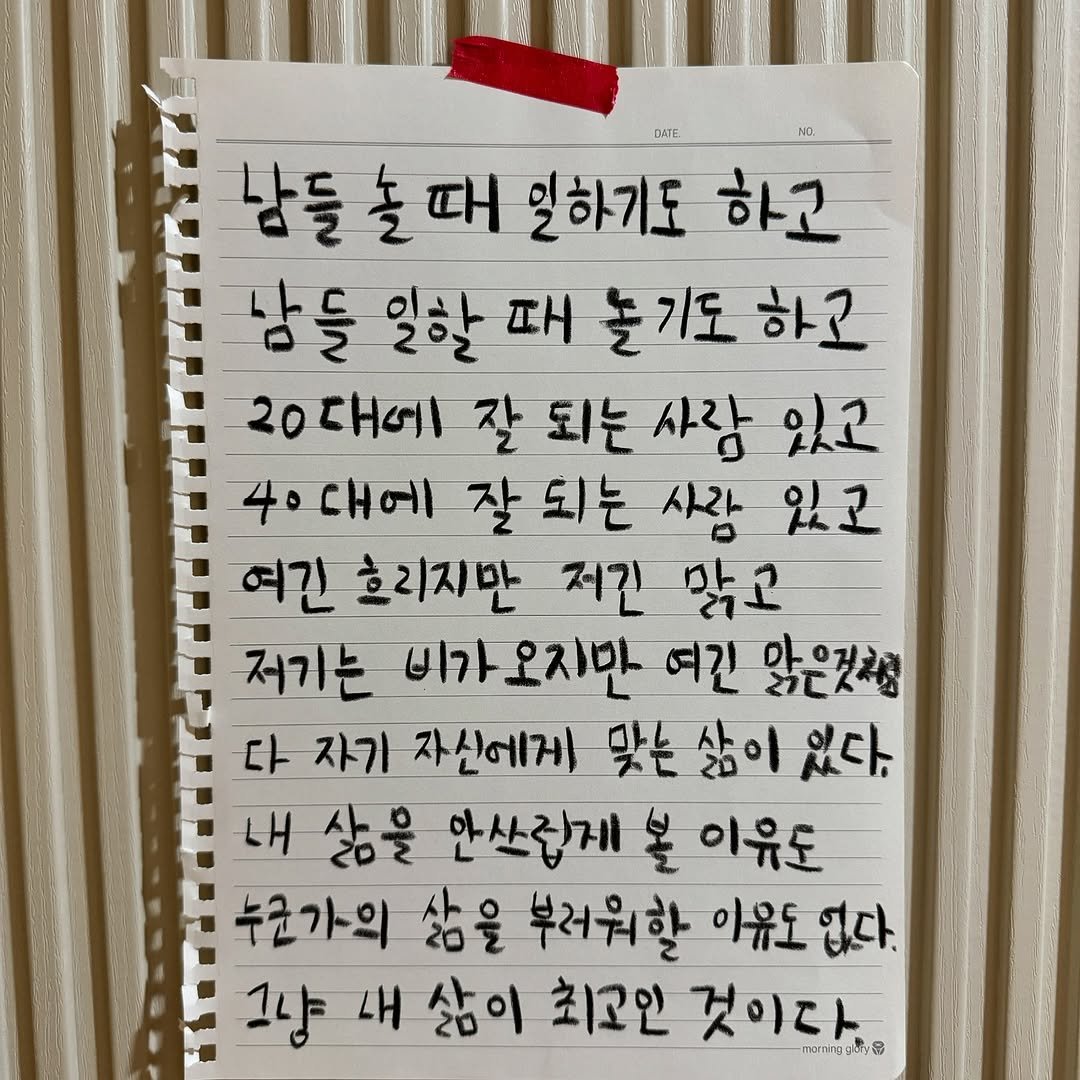 DATE. NO.
남들 놀 때 일하기도 하고
남들 일할 때 놀기도 하고
20대에 잘 되는 사람 있고
40대에 잘 되는 사람 있고
여긴 흐리지만 저긴 맑고
저기는 비가 오지만 여긴 맑은것처럼
다 자기 자신에게 맞는 삶이 있다.
내 삶을 안쓰럽게 볼 이유도
누군가의 삶을 부러워할 이유도 없다.
그냥 내 삶이 최고인 것이다.
morning glory